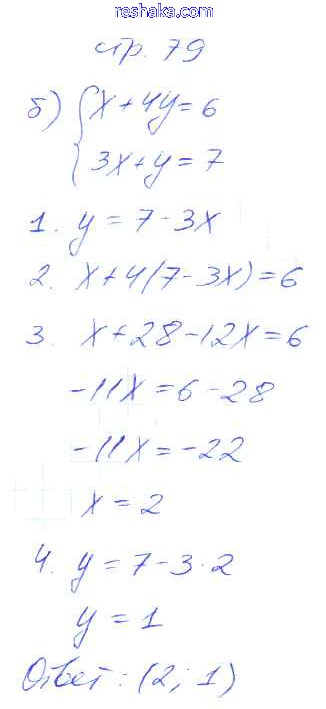 reshaka.com
стр. 79
б) { x + 4y = 6
3x + y = 7
1. y = 7 - 3x
2. x + 4(7 - 3x) = 6
3. x + 28 - 12x = 6
-11x = 6 - 28
-11x = -22
x = 2
4. y = 7 - 3 · 2
y = 1
Ответ: (2; 1)